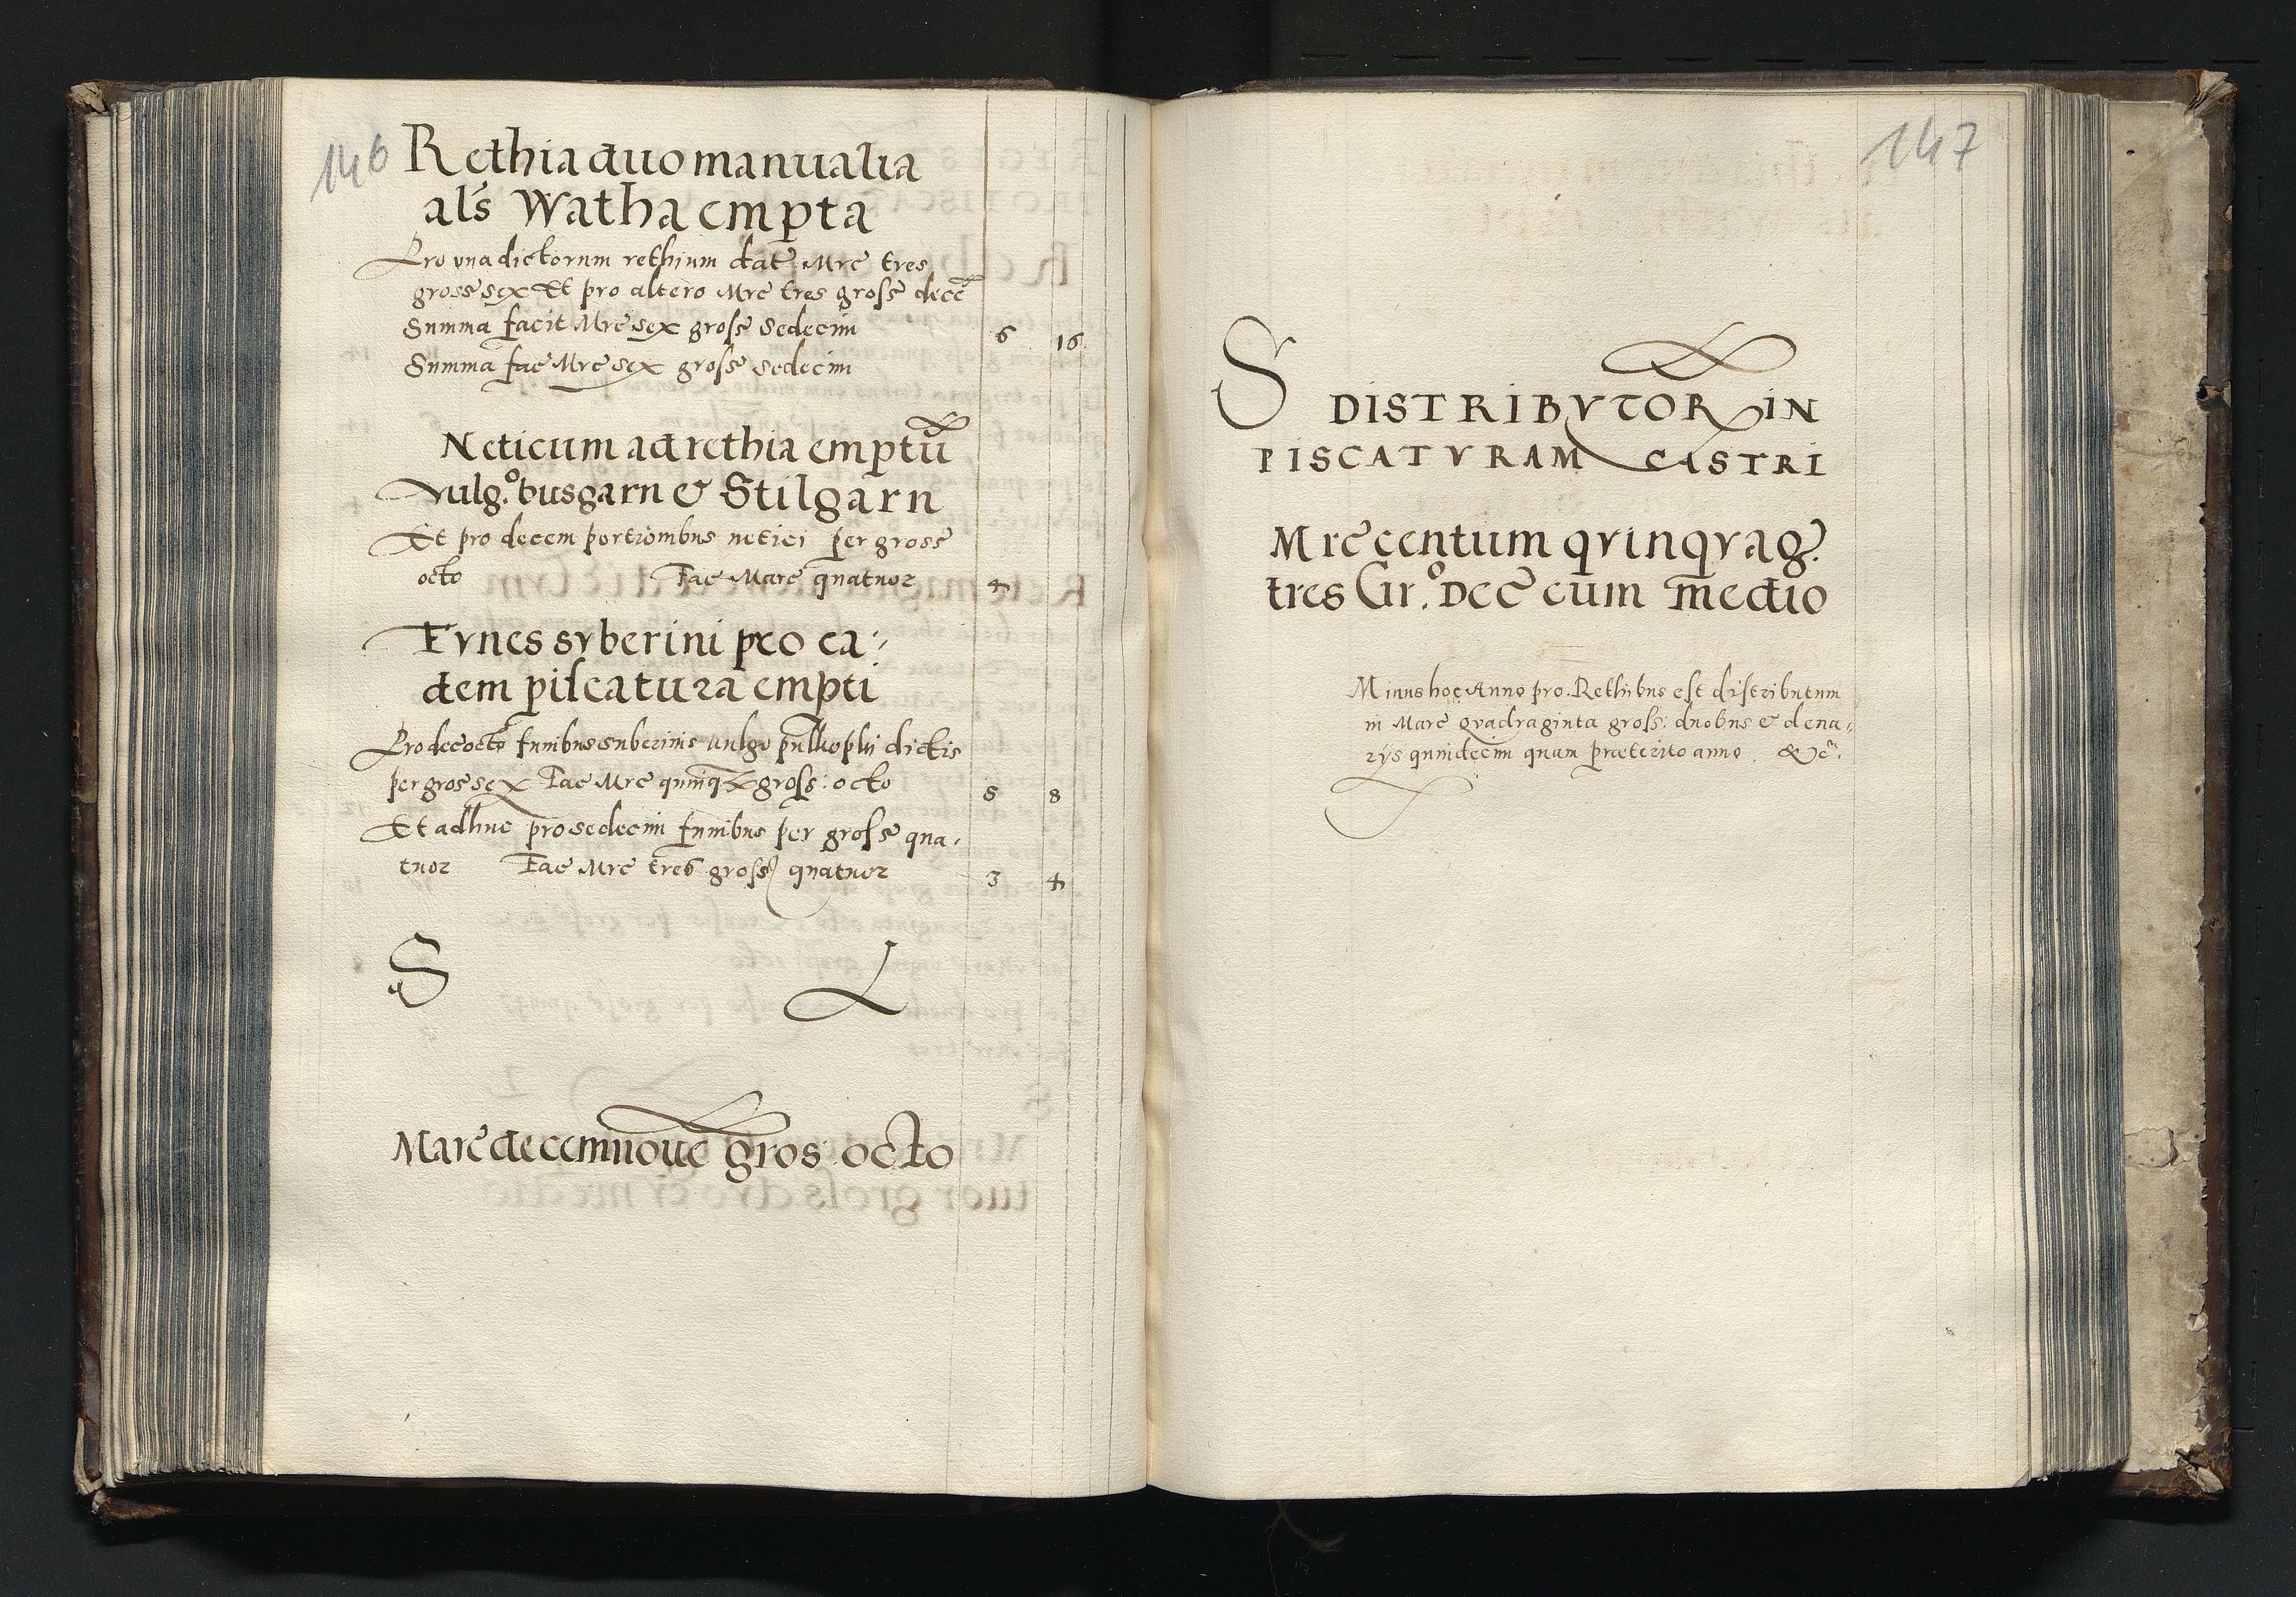 146
Rethia duo manualia
als Watha empta
Pro una dictorum rethium dat Mrc tres
gross sex Et pro altero Mrc tres gross dece
Summa facit Mrc sex gross sedecim 6 16
Summa fac Mrc sex gross sedecim
Neticum ad rethia emptū
vulgo busgarn & Stilgarn
Et pro decem portionibus netici per gross
octo Fac Marc quatuor 4
Fvnes svberini pro ea⹀
dem piscatura empti
Pro dec octo funibus suberinis vulgo dictis
per gros sex Fac Mrc quinq gross: octo 5 8
Et adhuc pro sedecim funibus per gross qua⹀
tuor Fac Mrc tres gross quatuor 3 4
S L
Marc decemnoue gros: octo
147
S DISTRIBVTOR IN
PISCATVRAM CASTRI
Mrc centum qvinqvag.
tres Gr.o Dec cum medio
Minus hoc Anno pro Rethibus est distributum
in Marc qvadraginta gross: duobus & dena⹀
rijs quindecim quam præterito anno. &c.